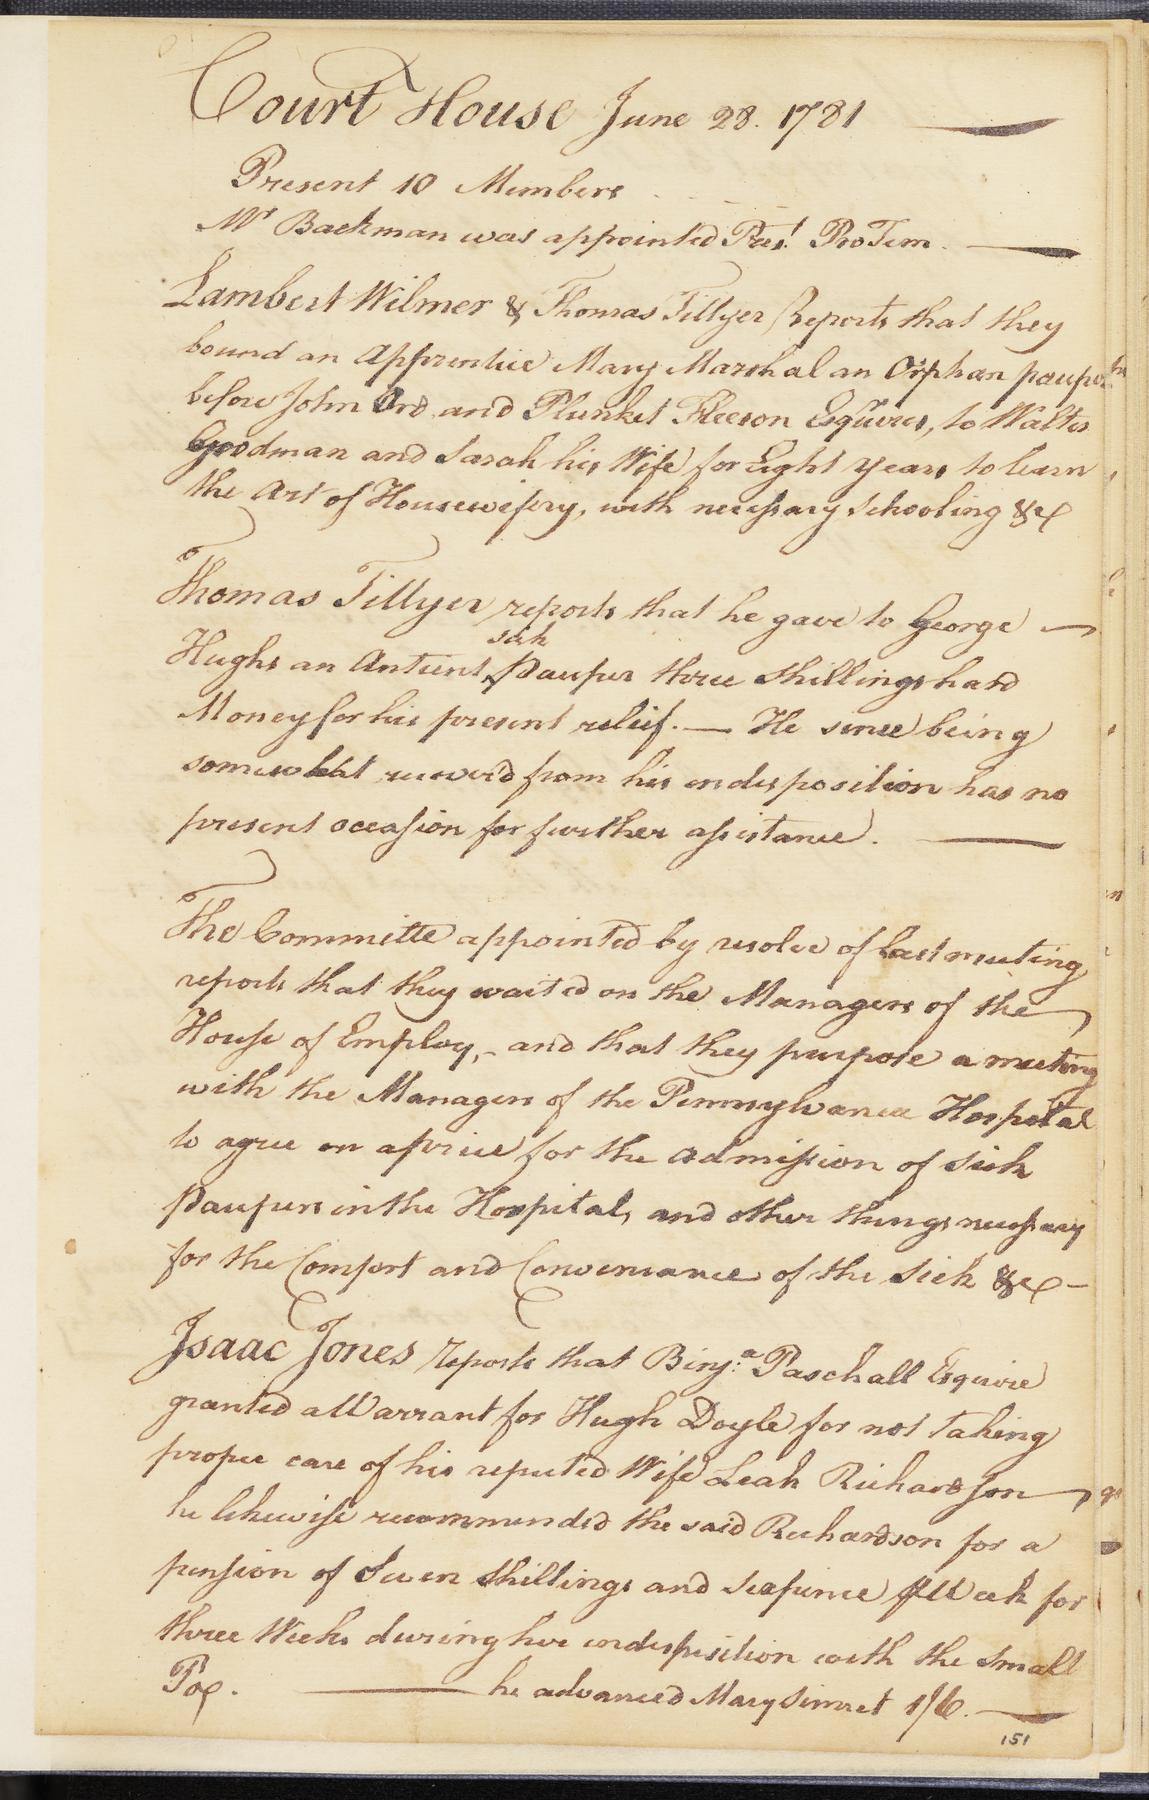 Court House June 28. 1781
Present 10 Members
Mr Backman was appointed Prest. ProTem.
Lambert Wilmer & Thomas Tillyer Reports that they
bound an Apprentice Mary Marshal an Orphan pauper
before John Ord and Plunket Fleeson Esquires, to Walter
Goodman and Sarah his Wife for Eight years to learn
the Art of Housewifery, with necessary schooling &c
Thomas Tillyer reports that he gave to George
sick
Hughs an Antient Pauper three shillings hard
Money for his present relief. — He since being
somewhat recover'd from his indisposition has no
present occasion for further assistance.
The Committe appointed by resolve of last meeting
reports that they waited on the Managers of the
House of Employ, - and that they purpose a meeting
with the Managers of the Pennsylvania Hospital
to agree on a price for the admission of sick
Paupers in the Hospital, and other things necessary
for the Comfort and Conveniance of the sick &c -
Isaac Jones reports that Binj:a Paschall Esquire
granted a Warrant for Hugh Doyle for not taking
proper care of his reputed Wife Leah Richardson
he likewise recommended the said Richardson for a
pension of Seven shillings and sixpence Week for
three Weeks during her indisposition with the small
Pox. — he advanced Mary 1/6.
151